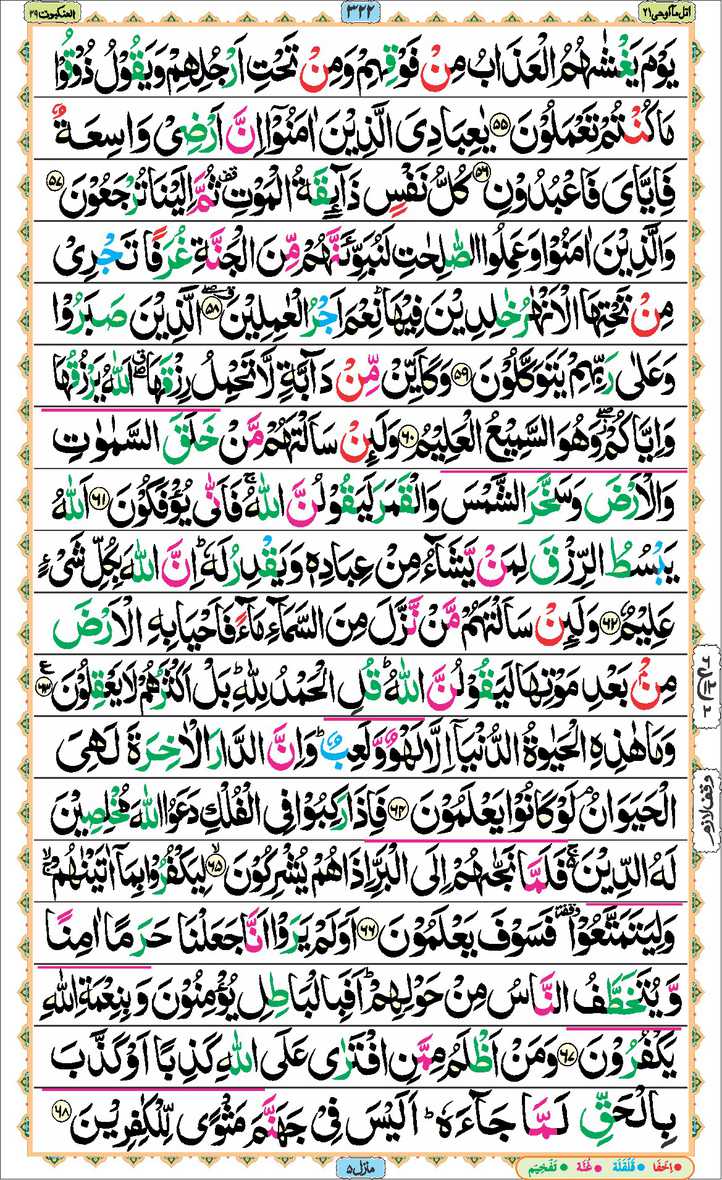 اتل ما اوحی ٢١
٣٢٢
العنکبوت ٢٩
يَوْمَ يَغْشٰىهُمُ الْعَذَابُ مِنْ فَوْقِهِمْ وَمِنْ تَحْتِ اَرْجُلِهِمْ وَيَقُوْلُ ذُوْقُوْا
مَا كُنْتُمْ تَعْمَلُوْنَ ﴿٥٥﴾ يٰعِبَادِىَ الَّذِيْنَ اٰمَنُوْۤا اِنَّ اَرْضِىْ وَاسِعَةٌ
فَاِيَّاىَ فَاعْبُدُوْنِ ﴿٥٦﴾ كُلُّ نَفْسٍ ذَآئِقَةُ الْمَوْتِ ۫ ثُمَّ اِلَيْنَا تُرْجَعُوْنَ ﴿٥٧﴾
وَالَّذِيْنَ اٰمَنُوْا وَعَمِلُوا الصّٰلِحٰتِ لَنُبَوِّئَنَّهُمْ مِّنَ الْجَنَّةِ غُرَفًا تَجْرِىْ
مِنْ تَحْتِهَا الْاَنْهٰرُ خٰلِدِيْنَ فِيْهَا ؕ نِعْمَ اَجْرُ الْعٰمِلِيْنَ ﴿٥٨﴾ الَّذِيْنَ صَبَرُوْا
وَعَلٰى رَبِّهِمْ يَتَوَكَّلُوْنَ ﴿٥٩﴾ وَكَاَيِّنْ مِّنْ دَآبَّةٍ لَّا تَحْمِلُ رِزْقَهَا ۖ اَللّٰهُ يَرْزُقُهَا
وَاِيَّاكُمْ ۖ وَهُوَ السَّمِيْعُ الْعَلِيْمُ ﴿٦٠﴾ وَلَئِنْ سَاَلْتَهُمْ مَّنْ خَلَقَ السَّمٰوٰتِ
وَالْاَرْضَ وَسَخَّرَ الشَّمْسَ وَالْقَمَرَ لَيَقُوْلُنَّ اللّٰهُ ۚ فَاَنّٰى يُؤْفَكُوْنَ ﴿٦١﴾ اَللّٰهُ
يَبْسُطُ الرِّزْقَ لِمَنْ يَّشَآءُ مِنْ عِبَادِهٖ وَيَقْدِرُ لَهٗ ؕ اِنَّ اللّٰهَ بِكُلِّ شَىْءٍ
عَلِيْمٌ ﴿٦٢﴾ وَلَئِنْ سَاَلْتَهُمْ مَّنْ نَّزَّلَ مِنَ السَّمَآءِ مَآءً فَاَحْيَا بِهِ الْاَرْضَ
مِنْۢ بَعْدِ مَوْتِهَا لَيَقُوْلُنَّ اللّٰهُ ؕ قُلِ الْحَمْدُ لِلّٰهِ ؕ بَلْ اَكْثَرُهُمْ لَا يَعْقِلُوْنَ ﴿٦٣﴾ ع
وَمَا هٰذِهِ الْحَيٰوةُ الدُّنْيَاۤ اِلَّا لَهْوٌ وَّلَعِبٌ ؕ وَاِنَّ الدَّارَ الْاٰخِرَةَ لَهِىَ
الْحَيَوَانُ ۘ لَوْ كَانُوْا يَعْلَمُوْنَ ﴿٦٤﴾ فَاِذَا رَكِبُوْا فِى الْفُلْكِ دَعَوُا اللّٰهَ مُخْلِصِيْنَ
وقف لازم
لَهُ الدِّيْنَ ۚ فَلَمَّا نَجّٰىهُمْ اِلَى الْبَرِّ اِذَا هُمْ يُشْرِكُوْنَ ﴿٦٥﴾ لِيَكْفُرُوْا بِمَاۤ اٰتَيْنٰهُمْ ۙ
وَلِيَتَمَتَّعُوْا ۥ فَسَوْفَ يَعْلَمُوْنَ ﴿٦٦﴾ اَوَلَمْ يَرَوْا اَنَّا جَعَلْنَا حَرَمًا اٰمِنًا
وَّيُتَخَطَّفُ النَّاسُ مِنْ حَوْلِهِمْ ؕ اَفَبِالْبَاطِلِ يُؤْمِنُوْنَ وَبِنِعْمَةِ اللّٰهِ
يَكْفُرُوْنَ ﴿٦٧﴾ وَمَنْ اَظْلَمُ مِمَّنِ افْتَرٰى عَلَى اللّٰهِ كَذِبًا اَوْ كَذَّبَ
بِالْحَقِّ لَمَّا جَآءَهٗ ؕ اَلَيْسَ فِىْ جَهَنَّمَ مَثْوًى لِّلْكٰفِرِيْنَ ﴿٦٨﴾
منزل ٥
اِخفَا قَلقَلَة غُنَّة تَفخِيم